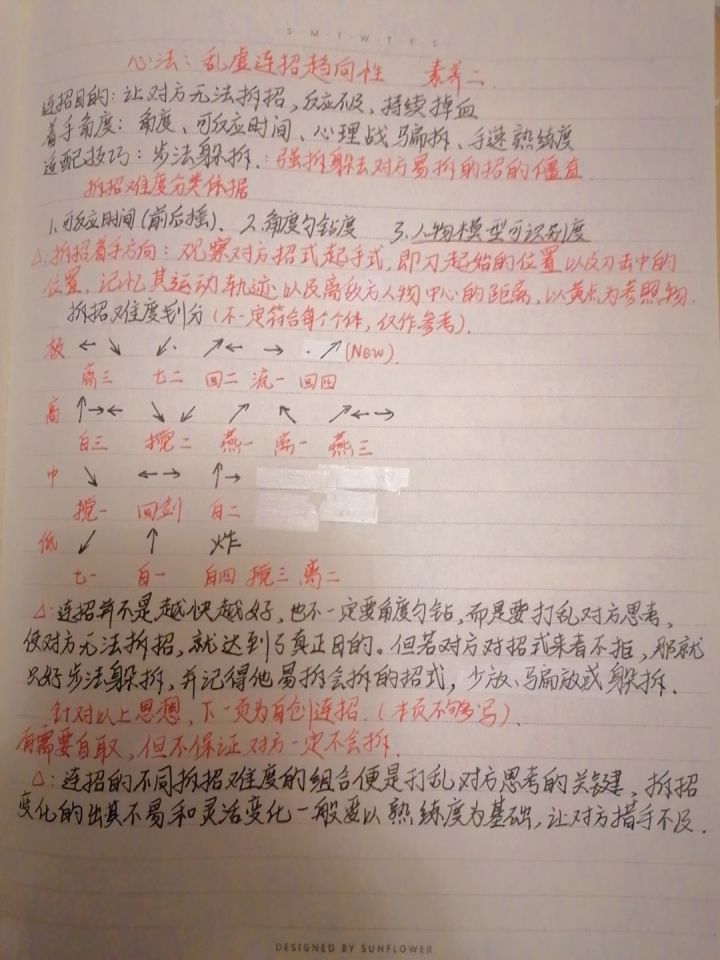 S · M · T · W · T · F · S
心法：乱虚连招趋向性 素养二
连招目的：让对方无法拆招，反应不及、持续掉血
着手角度：角度、可反应时间、心理战骗拆、手速熟练度
适配技巧：步法躲拆．：强拆躲去对方易拆的招的僵直
拆招难度分类依据
1.可反应时间(前后摇)、 2.角度刁钻度 3.人物模型可识别度
△：拆招着手方向：观察对方招式起手式，即刀起始的位置以及刀击中的
位置，记忆其运动轨迹以及离敌方人物中心的距离，以黄点为参照物．
拆招难度划分(不一定符合每个个体，仅作参考)．
←↘ ↙· ↗← → ·↗(New)
离三 七二 回二 流一 回四
高 ↑→← ↘↙ ↗ ↖ ↗←→
自三 搅二 燕一 离一 燕三
中 ↘ ←→ ↑→
搅一 回剑 自二
低 ↙ ↑ 炸
七一 自一 自四 搅三 离二
△：连招并不是越快越好，也不一定要角度刁钻，而是要打乱对方思考，
使对方无法拆招，就达到了真正目的。但若对方对招式来者不拒，那就
只好步法躲拆，并记得他易拆会拆的招式，少放、骗放或躲拆．
针对以上思想，下一页为自创连招．(本页不够写)．
有需要自取，但不保证对方一定不会拆．
△：连招的不同拆招难度的组合便是打乱对方思考的关键，拆招
变化的出其不易和灵活变化一般要以熟练度为基础，让对方措手不及．
DESIGNED BY SUNFLOWER